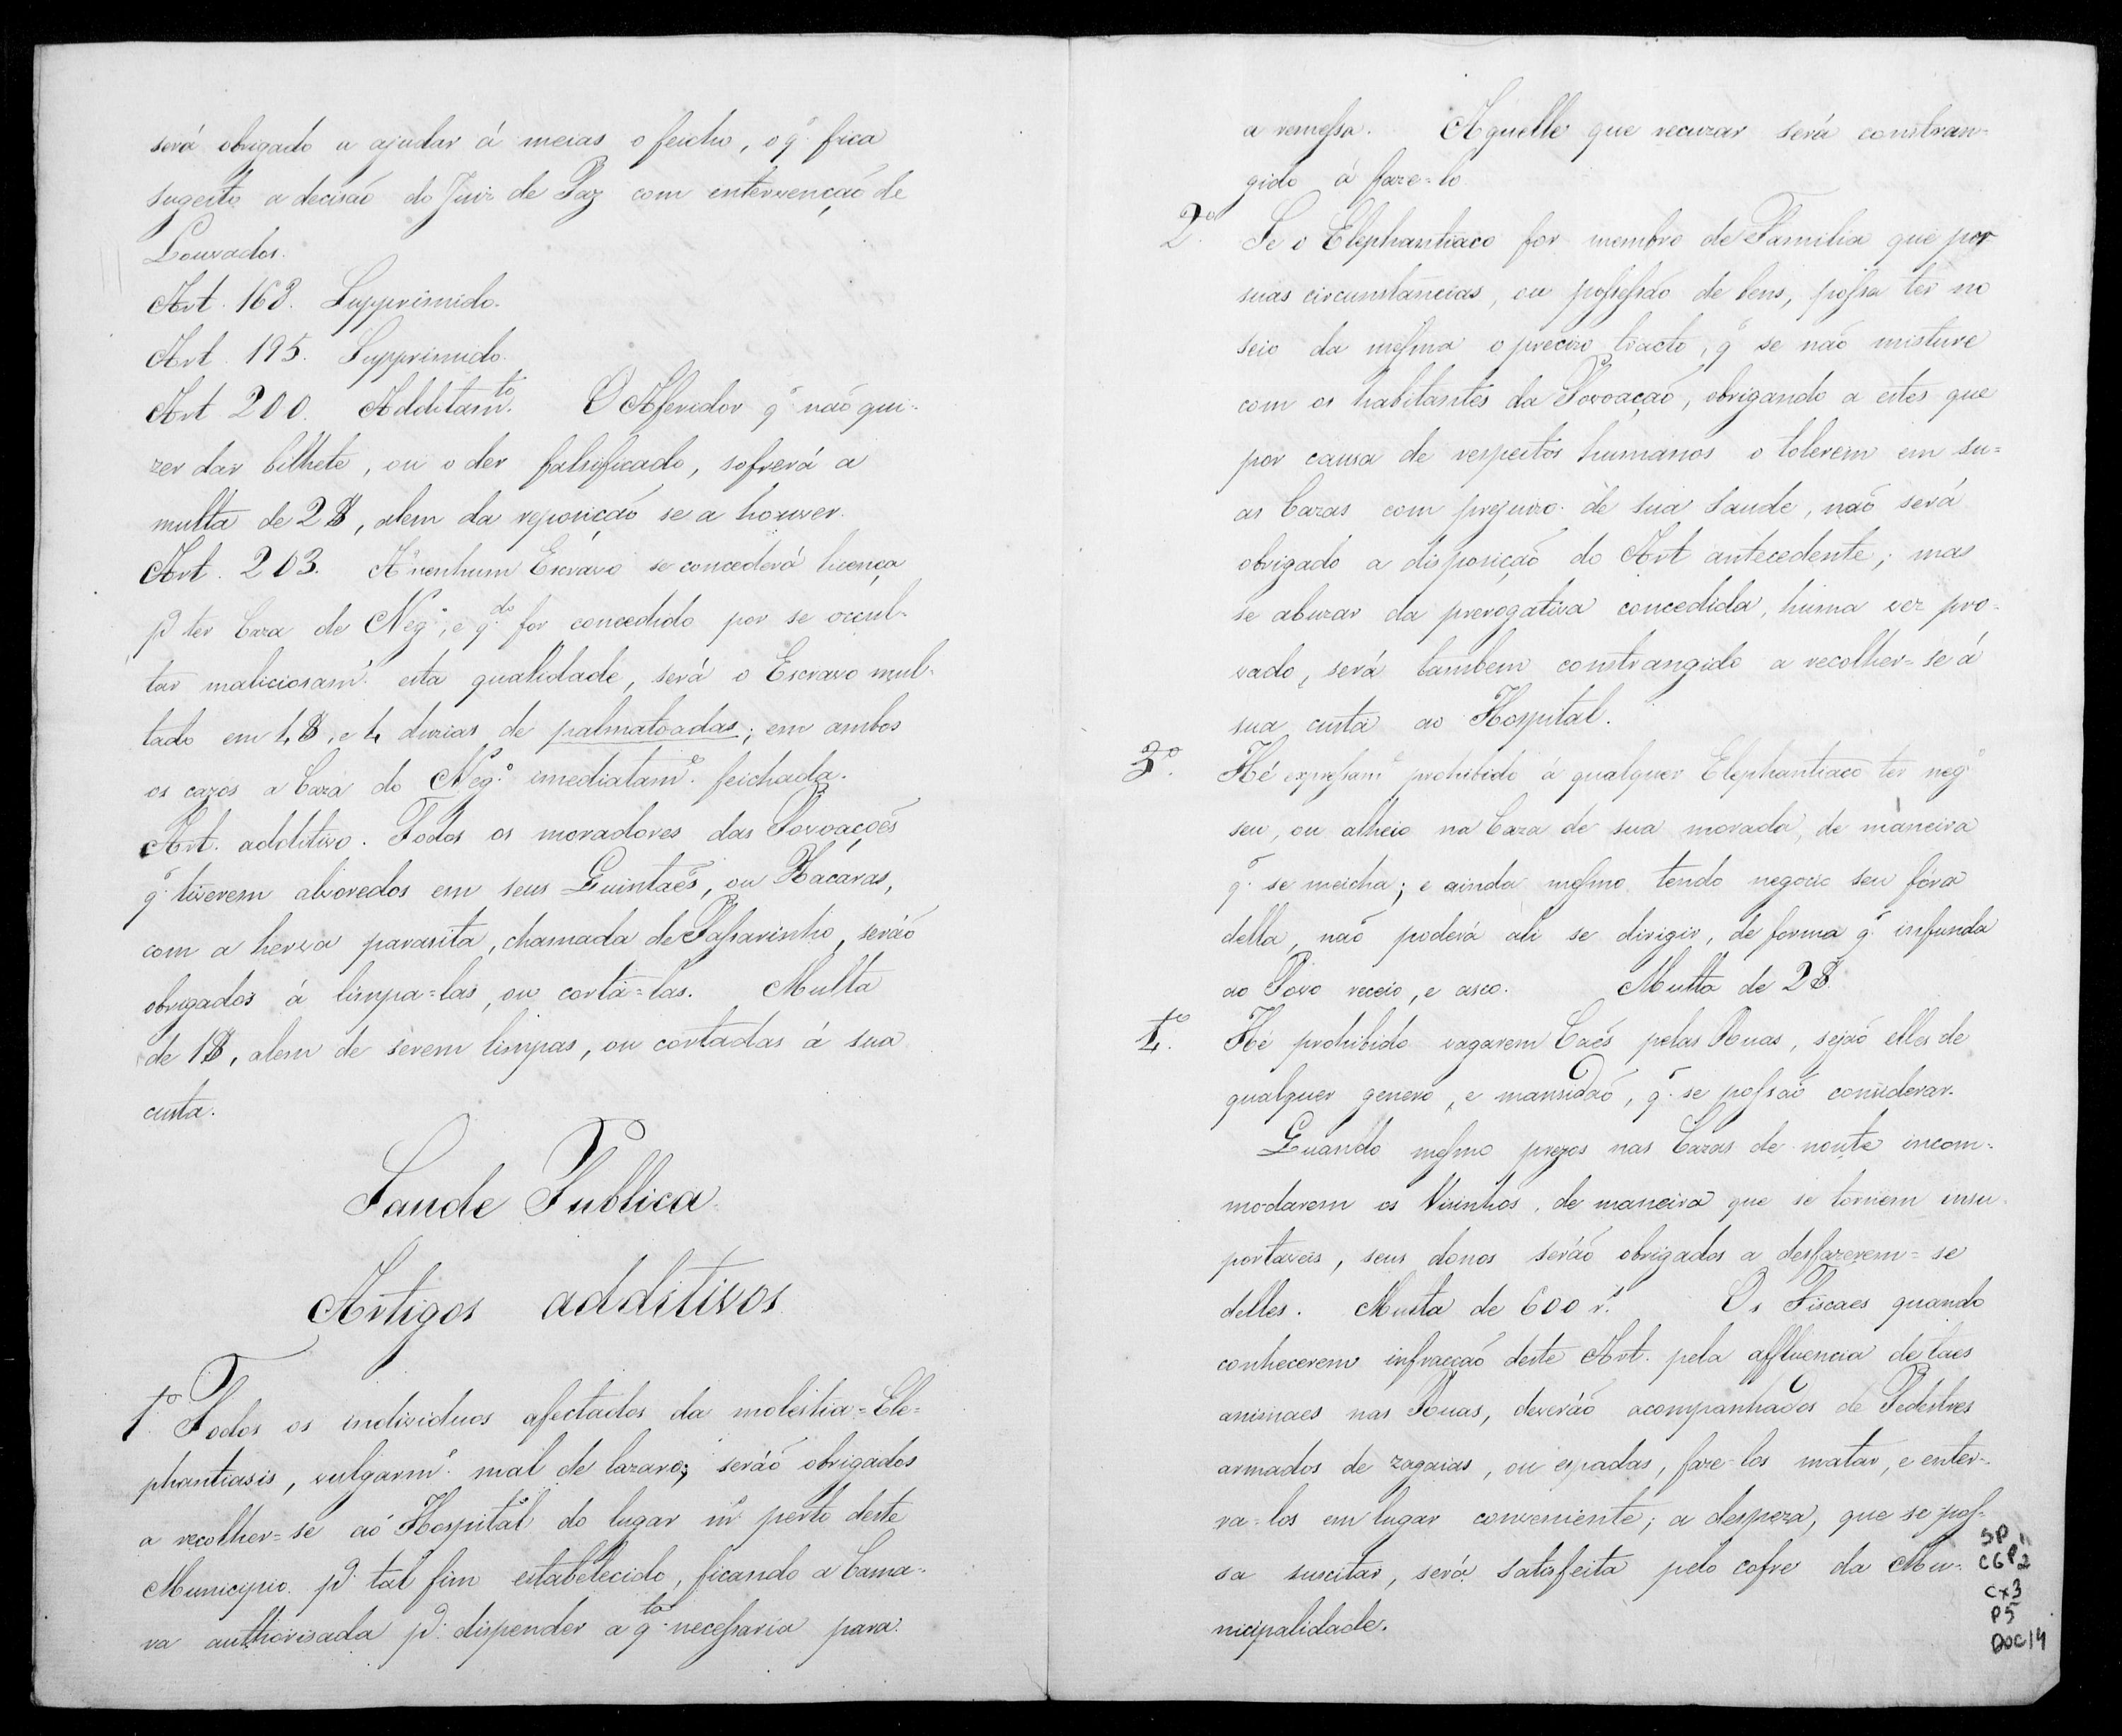 será obrigado a ajudar á meias o feicho, o q̃ fica
sugeito a decisaõ do Juiz de Paz com entervençaõ de
Louvados.
Art. 163. Supprimido.
Art. 195. Supprimido.
Art 200. Additam.to O Afferidor q̃ naõ qui-
zer dar bilhete, ou o der falsificado, sofrerá a
multa de 2$, alem da reposiçaõ se a houver.
Art. 203. A nenhum Escravo se concederá licença
p.a ter Caza de Neg.o, e q.do for concedido por se occul-
tar maliciosam.e esta qualidade, será o Escravo mul-
tado em 4$, e 4 duzias de palmatoadas; em ambos
os cazos a Caza do Neg.o imediatam.e feichada.
Art. additivo. Todos os moradores das Povoações
q̃ tiverem alvoredos em seus Quintaēs, ou Xácaras,
com a herva parasita, chamada de Paſsarinho, seráõ
obrigados á limpa=las, ou corta=las. Multa
de 1$, alem de serem limpas, ou cortadas á sua
custa.
Saude Publica
Artigos additivos
1.o Todos os individuos afectados da molestia=Ele=
phantiasis, vulgarm.e mal de lazaro; seráõ obrigados
a recolher=se ao Hospital do lugar m.s perto deste
Municipio p.a tal fim estabelecido, ficando a Cama-
ra authorisada p.a dispender a q.ta neceſsaria para
a remeſsa. Aquelle que recuzar será constran-
gido á faze=lo
2.o Se o Elephantiaco for membro de Familia que por
suas circunstancias, ou poſseſsáo de bens, poſsa ter no
seio da meſma o precizo tracto, q̃ se naõ misture
com os habitantes da Povoaçaõ, obrigando a estes que
por causa de respeitos humanos o tolerem em su=
as Cazas com prejuizo de sua saude, naõ será
obrigado a disposiçaõ do Art antecedente; mas
se abuzar da prerogativa concedida, huma vez pro-
vado, será tambem constrangido a recolher=se á
sua custa ao Hospital.
3.o Hé expreſsam.e prohibido á qualquer Elephantiaco ter neg.o
seu, ou alheio na Caza de sua morada, de maneira
q̃ se meicha; e ainda meſmo tendo negocio seu fóra
della, naõ poderá ali se dirigir, de forma q̃ infunda
ao Povo receio, e asco. Multa de 2$.
4.o Hé prohibido vagarem Caēs pelas Ruas, sejaõ elles de
qualquer genero, e mansidaõ, q̃ se poſsaõ considerar.
Quando meſmo prezos nas Cazas de noute incom-
modarem os Visinhos, de maneira que se tornem insu
portaveis, seus donos seráõ obrigados a desfazerem=se
delles. Multa de 600 r.s Os Fiscaes quando
conhecerem infracçaõ deste Art. pela affluencia de taes
animaes nas Ruas, deveráõ acompanhados de Pedestres
armados de zagaias, ou espadas, faze-los matar, e enter-
ra=los em lugar conveniente; a despeza, que se poſ-
sa suscitar, será satisfeita pelo cofre da Mu-
nicipalidade.
SP
CGP2
Cx3
P5
DOC14